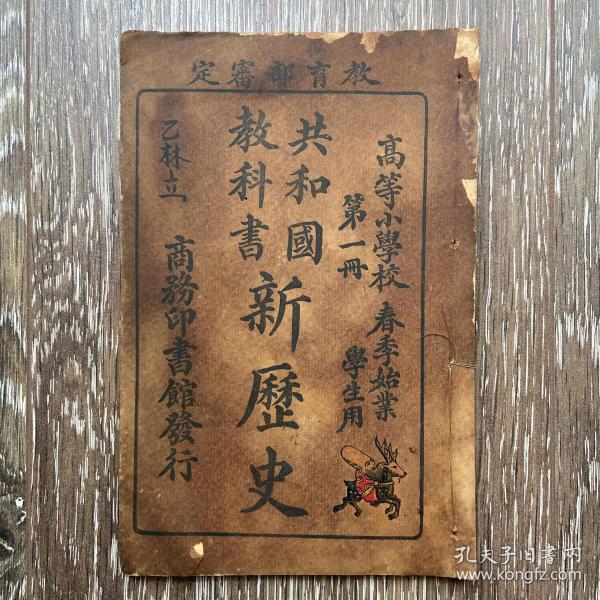 教育部審定
高等小學校 春季始業
學生用
第一冊
共和國
教科書
新歷史
商務印書館發行
乙林立
孔夫子旧書网
www.kongfz.com